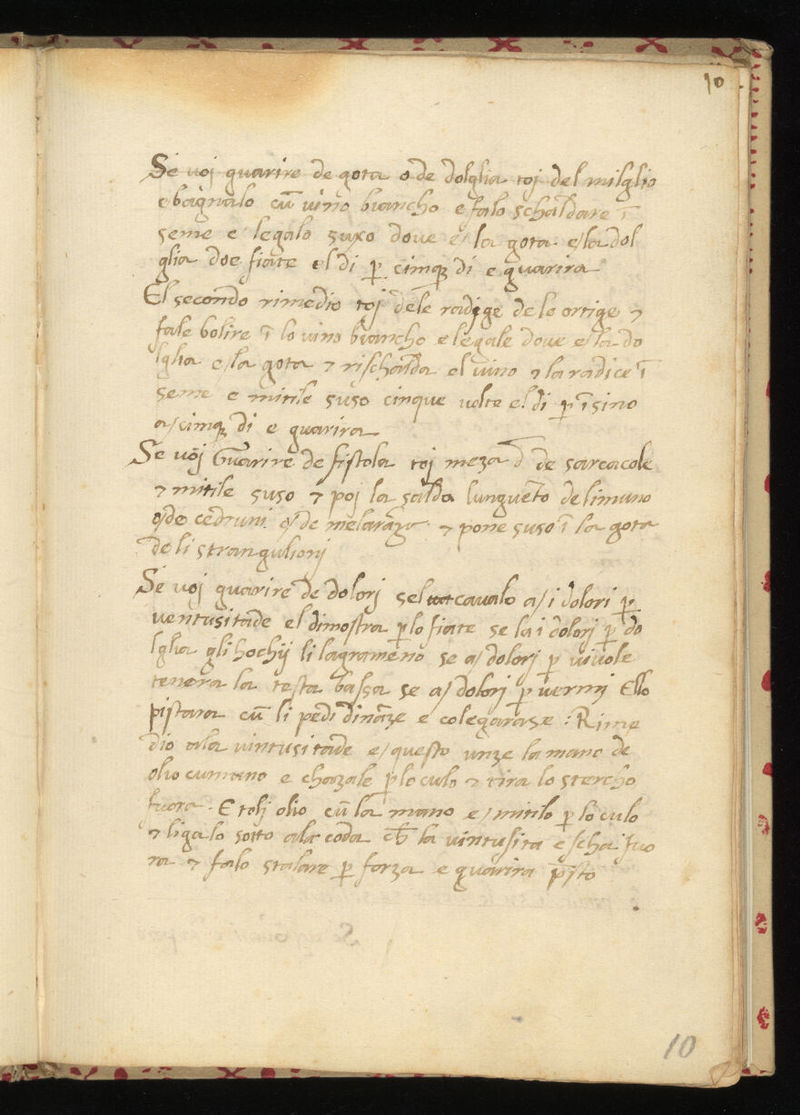 10
Se voj guarire de gota o de dolglia toj del milglio
e bagnalo cũ vino biancho e falo schaldare ĩ
seme e legalo suxo dove e/ la gota e/la dol
glia doe fiate el di p̱ cimq̱ di e guarira
El secondo rimedio toj dele radige de le ortige ⁊
fale bolire ĩ lo vino biancho e legale dove e/la do
lglia e/la gota ⁊ rischalda el vino ⁊ la radice ĩ
seme e mitile suso cinque volte el di p̱ ĩsino
a/cimq̱ di e guarira
Se voj Guarire de fistola toj meza de sarcacole
⁊ mitile suso ⁊ poj la salda lunguẽto de limuno
o/de cedruni o/de melarãze ⁊ pone suso ĩ la gota
de li strangulionj
Se voj guarire de dolorj sel cavalo a/i dolori p̱
ventusitade el dimostra p̱lo fiate se la i dolorj p̱ do
lglia gli hochij li lagrameno se a/dolorj p̱ vivole
tenera la testa bassa se a/dolorj p̱ vermj Ello
pistara cũ li pedi dinãze e colegarase : Rime
dio ala vintusitade e/questo unze la mano de
olio cumuno e chazale p̱lo culo ⁊ tira lo stercho
fuora. E tolj olio cũ la mano e/mitilo p̱ lo culo
⁊ ligalo sotto ala coda la vintusita escha fuo
ra ⁊ falo stalare p̱ forza e guarira p̃sto
10